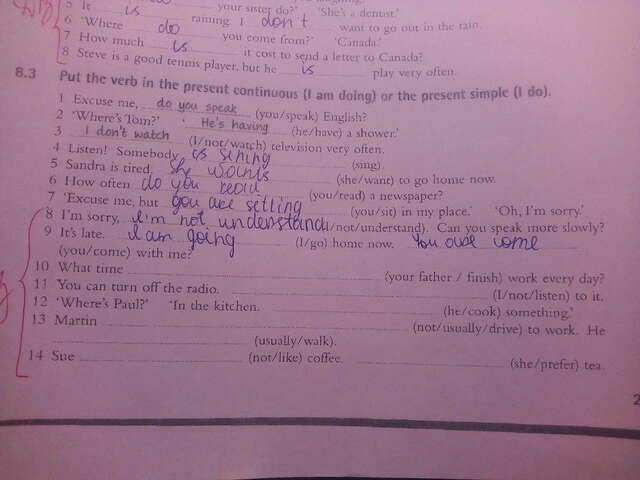 5 It is your sister do?' 'She's a dentist.'
6 'Where do raining. I don't want to go out in the rain.
7 How much is you come from?' 'Canada.'
8 Steve is a good tennis player, but he is it cost to send a letter to Canada?
play very often.
8.3 Put the verb in the present continuous (I am doing) or the present simple (I do).
1 Excuse me, do you speak (you/speak) English?
2 'Where's Tom?' 'He's having (he/have) a shower.'
3 I don't watch (I/not/watch) television very often.
4 Listen! Somebody is sining (sing).
5 Sandra is tired. She wants (she/want) to go home now.
6 How often do you read (you/read) a newspaper?
7 'Excuse me, but you are sitting (you/sit) in my place.' 'Oh, I'm sorry.'
8 I'm sorry, I'm not understand (I/not/understand). Can you speak more slowly?
9 It's late. I am going (I/go) home now. You are come
(you/come) with me?
10 What time (your father / finish) work every day?
11 You can turn off the radio. (I/not/listen) to it.
12 'Where's Paul?' 'In the kitchen. (he/cook) something.'
13 Martin (not/usually/drive) to work. He
(usually/walk).
14 Sue (not/like) coffee. (she/prefer) tea.
2